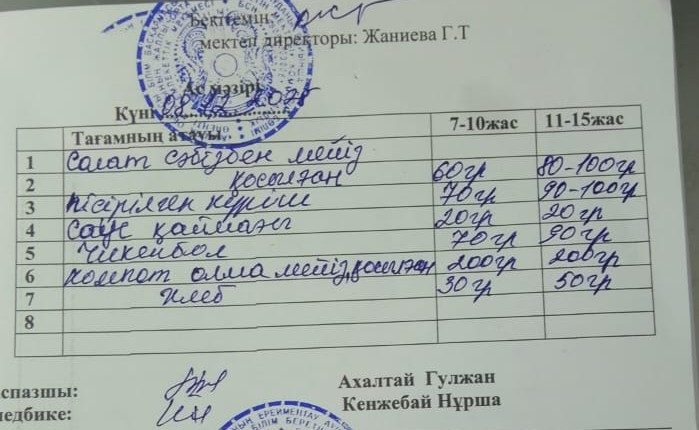 Бекітемін
мектеп директоры: Жаниева Г.Т
Ас мәзірі
Күні 08.12.2025
Тағамның атауы 7-10жас 11-15жас
1 Салат сәбізбен мейіз
2 қосылған 60гр 80-100гр
3 пісірілген күріш 70гр 90-100гр
4 Соус қаймағы 20гр 20гр
5 Чикенбол 70гр 90гр
6 компот алма мейіз қосылған 200гр 200гр
7 Хлеб 30гр 50гр
8
спазшы: Ахалтай Гулжан
медбике: Кенжебай Нұрша